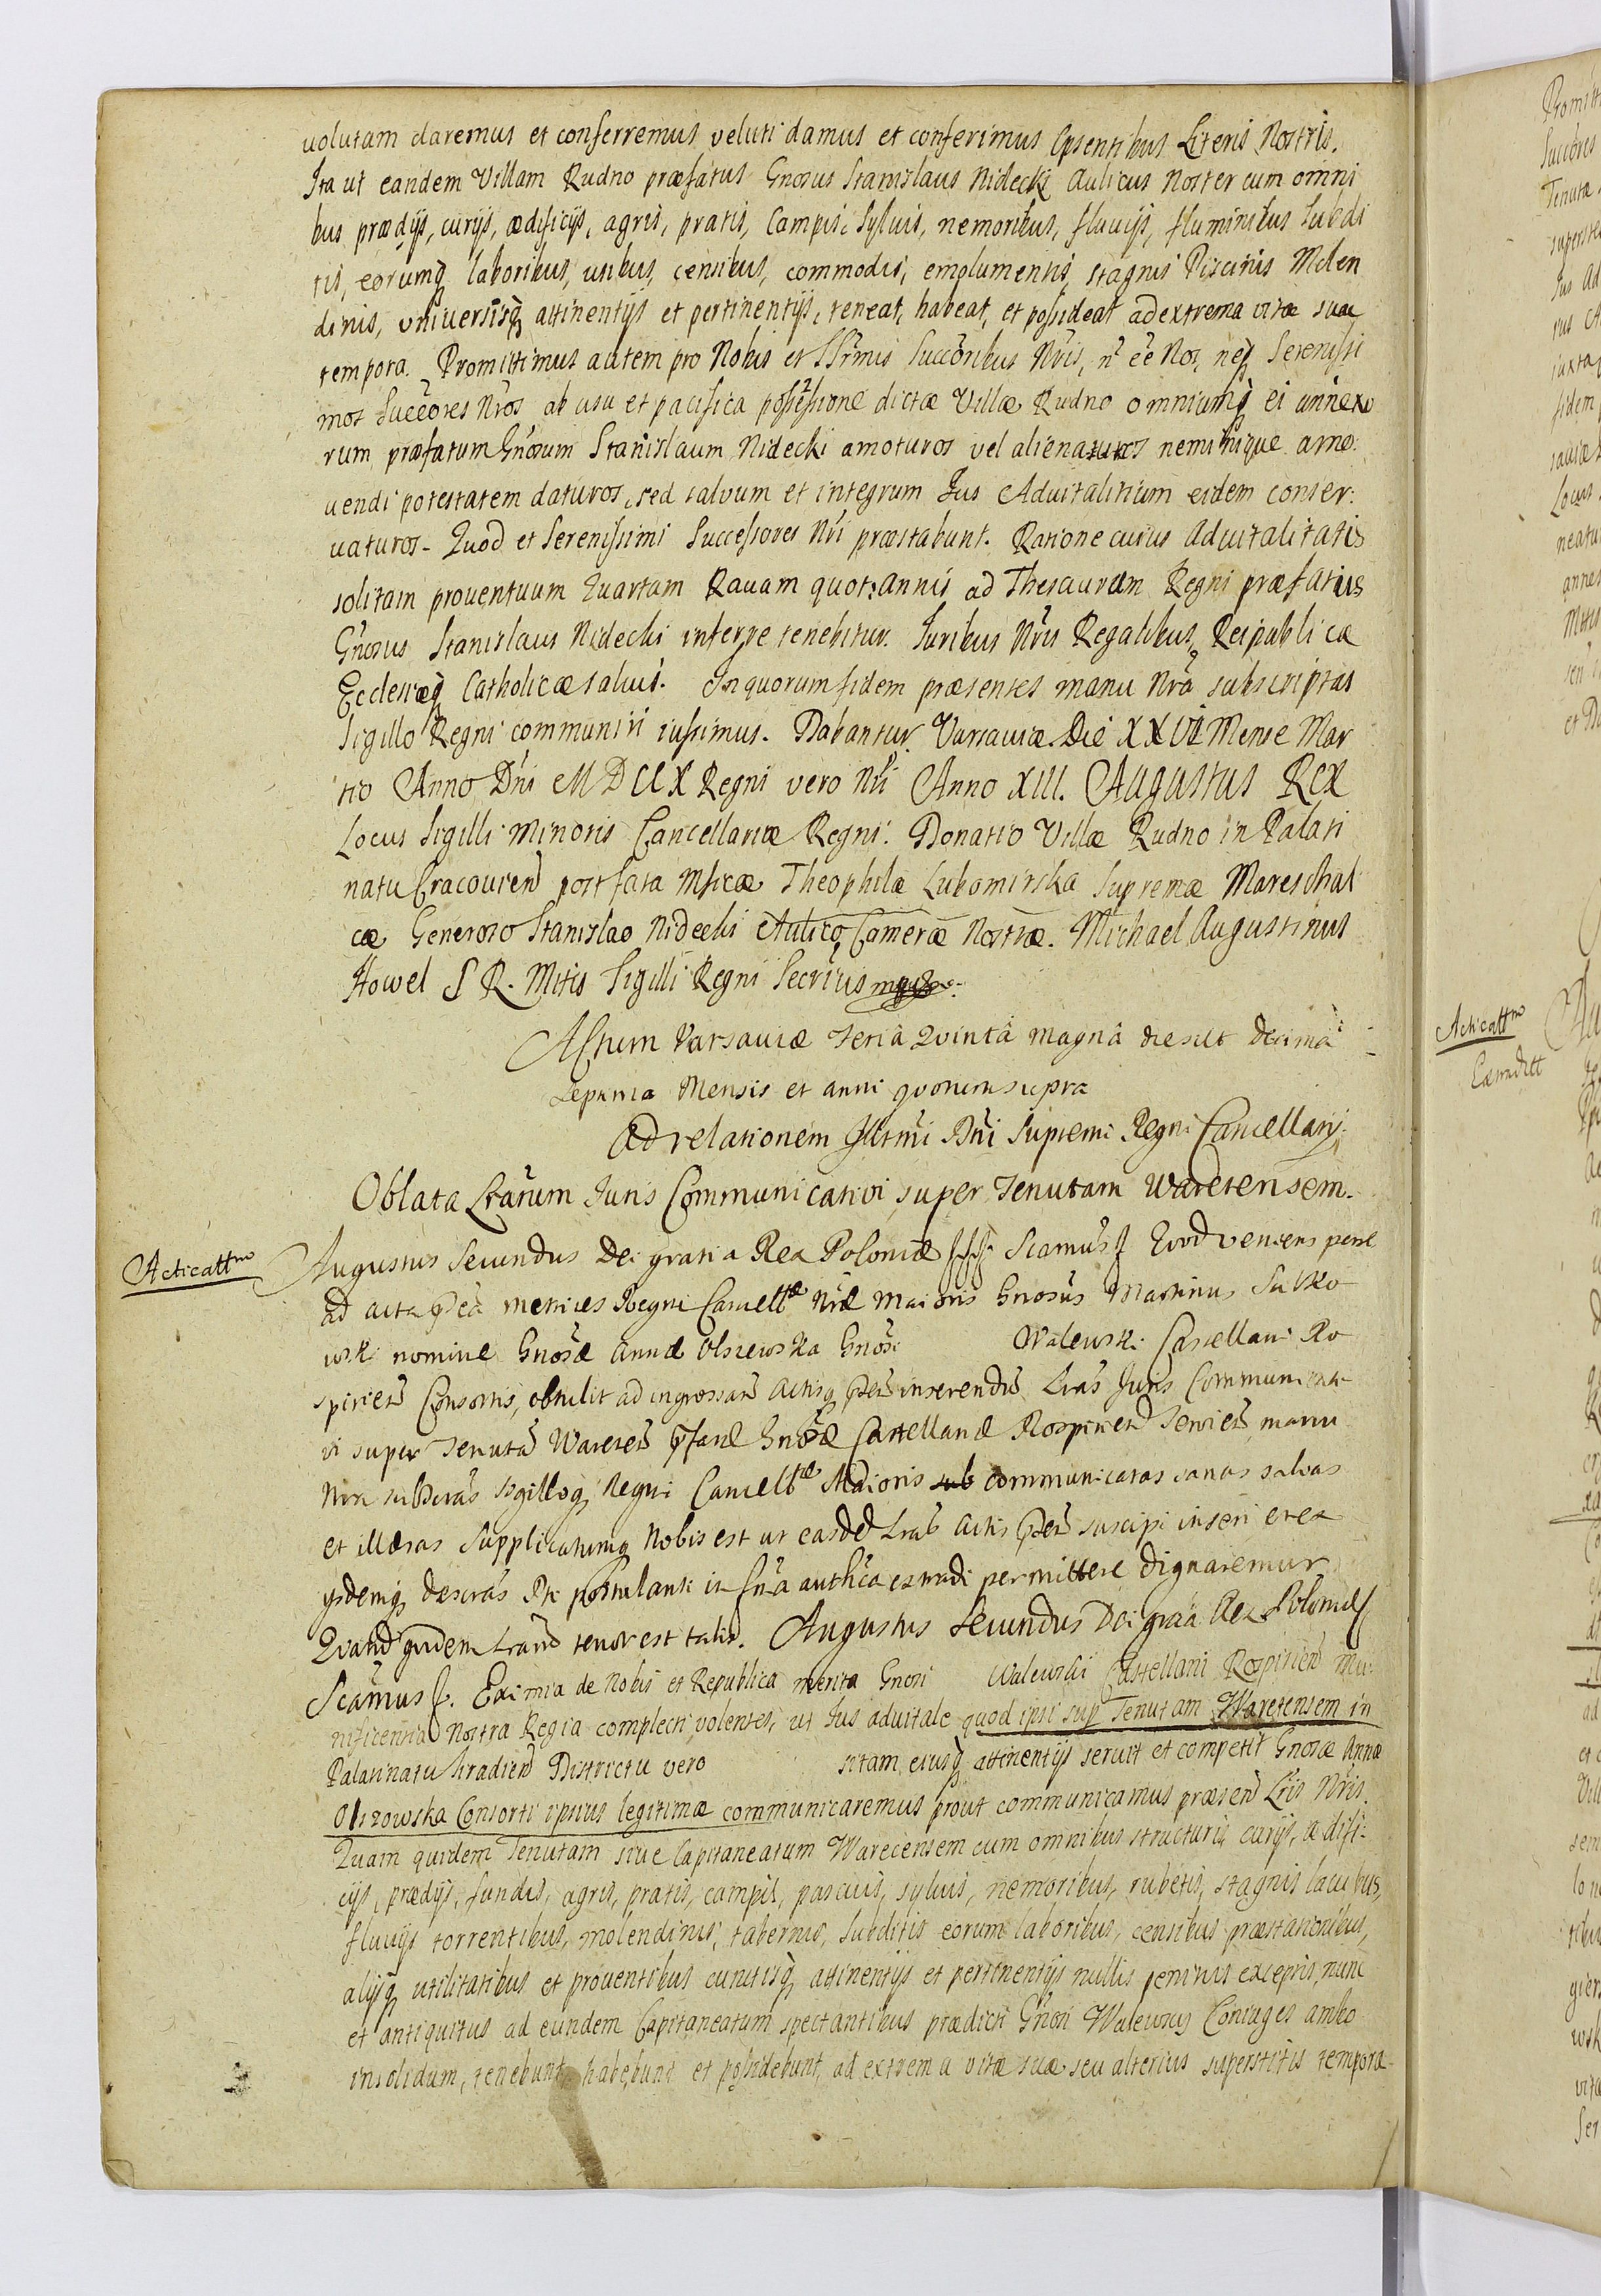 uolutam daremus et conferremus veluti damus et conferimus Ipsentibus Literis Nostris.
Ita ut eandem Villam Rudno præfatus Gnosus Stanislaus Nidecki Aulicus Noster cum omni
bus prædijs, curijs, ædificijs, agris, pratis, Campis, Syluis, nemoribus, fluuijs, fluminibus Subdi
tis, eorumq laboribus, usibus, censibus, commodis, emolumentis, stagnis Piscinis Molen
dinis, vniuersisq attinentijs et pertinentijs, teneat, habeat, et possideat ad extrema vitæ suæ
tempora. Promittimus autem pro Nobis et SSrmis Succoribus Nris, n ee Nos, neq Serenissi
mos Succores Nros ab usu et pacifica possessione dictæ Villæ Rudno omniumq ei annexo
rum præfatum Gnosum Stanislaum Nidecki amoturos vel alienaturos neminique amo:
uendi potestatem daturos, sed saluum et integrum Jus Aduitalitium eidem conser:
uaturos. Quod et Serenissimi Successores Nri præstabunt. Ratione cuius Aduitalitatis
solitam prouentuum Quartam Rauam quot:annis ad Thesaurum Regni præfatus
Gnosus Stanislaus Nidecki inferre tenebitur. Juribus Nris Regalibus, Reipublicæ
Ecclesiæq Catholicæ saluis. In quorum fidem præsentes manu Nra subscriptas
Sigillo Regni communiri iussimus. Dabantur Varsauiæ Die XXVI Mense Mar
tio Anno Dni MDCCX Regni vero Nri Anno XIII. Augustus Rex
Locus Sigilli Minoris Cancellariæ Regni. Donatio Villæ Rudno in Palati
natu Cracouien post fata Mficæ Theophilæ Lubomirska Supremæ Mareschal
cæ Generoso Stanislao Nidecki Aulico Cameræ Nostræ. Michael Augustinus
Howel S R. Mitis Sigilli Regni Secrius mpp
Actum Varsauiæ Feriâ Quintâ magnâ die scilt Decimâ
Septima Mensis et anni quorum supra
Ad relationem Illrmi Dni Supremi Regni Cancellarij.
Oblata Lrarum Juris Communicatiui super Tenutam Waretensem.
Acticattno
Augustus Secundus Dei gratia Rex Poloniæ Scamus Quod veniens perse
ad acta metrices Regni Cancellæ Nræ Maioris Gnosus Martinus Sulko
wski nomine Gnosæ Annæ Olszewska Gnosi Walewski Castellani Ro
spirien Consortis, obtulit ad ingrossan Actisq inserendu Lras Juris Communicati
vi super Tenuta Wareten Gnosæ Castellanæ Rospirien Seruien manu
Nra subscras Sigilloq Regni Cancellæ Maioris communicatas sanas saluas
et illæsas Supplicatumq Nobis est ut easdd Lras Actis suscipi inseri et ex
ijsdemq descras Pti postulanti in fna authca extradi permittere dignaremur
Quaru quidem Lraru tenor est talis. Augustus Secundus Dei gratia Rex Poloniæ
Scamus. Eximia de Nobis et Republica merita Gnosi Walewski Castellani Rospirien Mu:
nificentia Nostra Regia complecti volentes, ut Jus aduitale quod ipsi sup Tenutam Waretensem in
Palatinatu Siradien Districtu vero sitam, eiusq attinentijs seruit et competit Gnosæ Annæ
Olszowska Consorti ipsius legitimæ communicaremus prout communicamus præsen Lris Nris.
Quam quidem Tenutam siue Capitaneatum Warecensem cum omnibus structuris curijs, ædifi:
cijs, prædijs, fundis, agris, pratis, campis, pascuis, syluis, nemoribus, rubetis, stagnis lacubus,
fluuijs torrentibus, molendinis, tabernis, subditis eorum laboribus, censibus præstationibus,
alijsq utilitatibus et prouentibus cunctisq attinentijs et pertinentijs nullis penitus exceptis, nunc
et antiquitus ad eundem Capitaneatum spectantibus prædicti Gnosi Walewscy Coniuges ambo
insolidum, tenebunt, habebunt et possidebunt, ad extrema vitæ suæ seu alterius superstitis tempora.
Acticattno